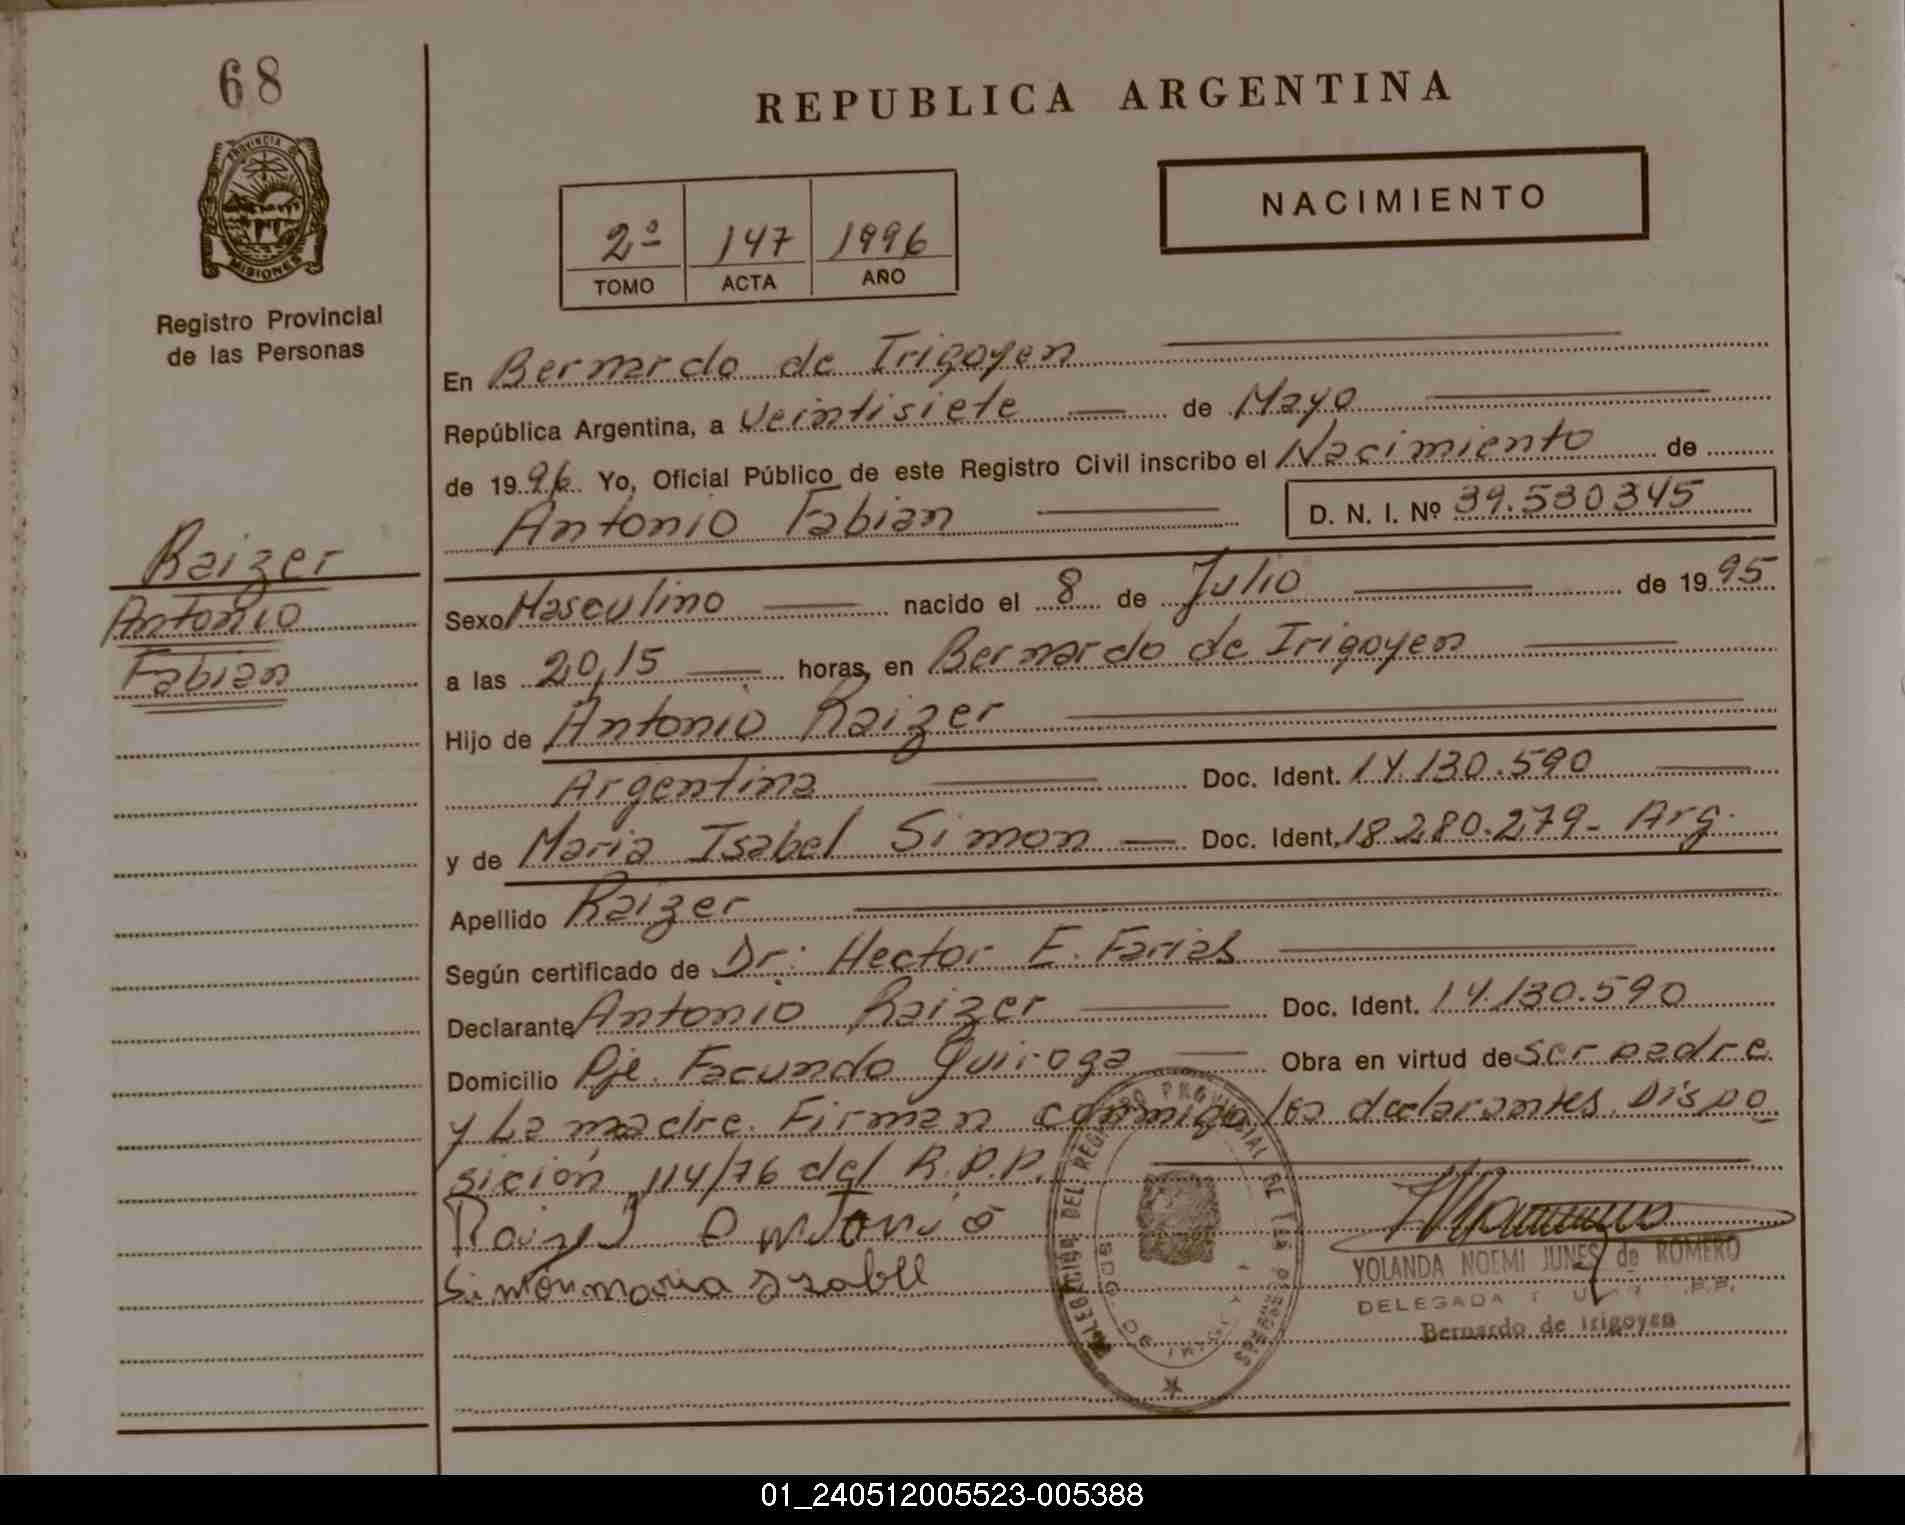 68
REPUBLICA ARGENTINA
PROVINCIA DE
MISIONES
NACIMIENTO
2º 147 1996
TOMO ACTA AÑO
Registro Provincial
de las Personas
En Bernardo de Irigoyen
República Argentina, a Veintisiete de Mayo
de 1996. Yo, Oficial Público de este Registro Civil inscribo el Nacimiento de
Antonio Fabian D. N. I. Nº 39.530345
Raizer
Antonio
Fabian
Sexo Masculino nacido el 8 de Julio de 1995
a las 20,15 horas, en Bernardo de Irigoyen
Hijo de Antonio Raizer
Argentina Doc. Ident. 14.130.590
y de Maria Isabel Simon Doc. Ident. 18.280.279- Arg.
Apellido Raizer
Según certificado de Dr: Hector E. Farias
Declarante Antonio Raizer Doc. Ident. 14.130.590
Domicilio Pje. Facundo Quiroga Obra en virtud de ser padre
y La madre. Firman conmigo los declarantes. Dispo
sición 114/76 del R.P.P.
Raizer Antonio
Simon maria Isabel
DELEGACION DEL REGISTRO PROVINCIAL DE LAS PERSONAS
YOLANDA NOEMI JUNES de ROMERO
DELEGADA
Bernardo de Irigoyen
01_240512005523-005388